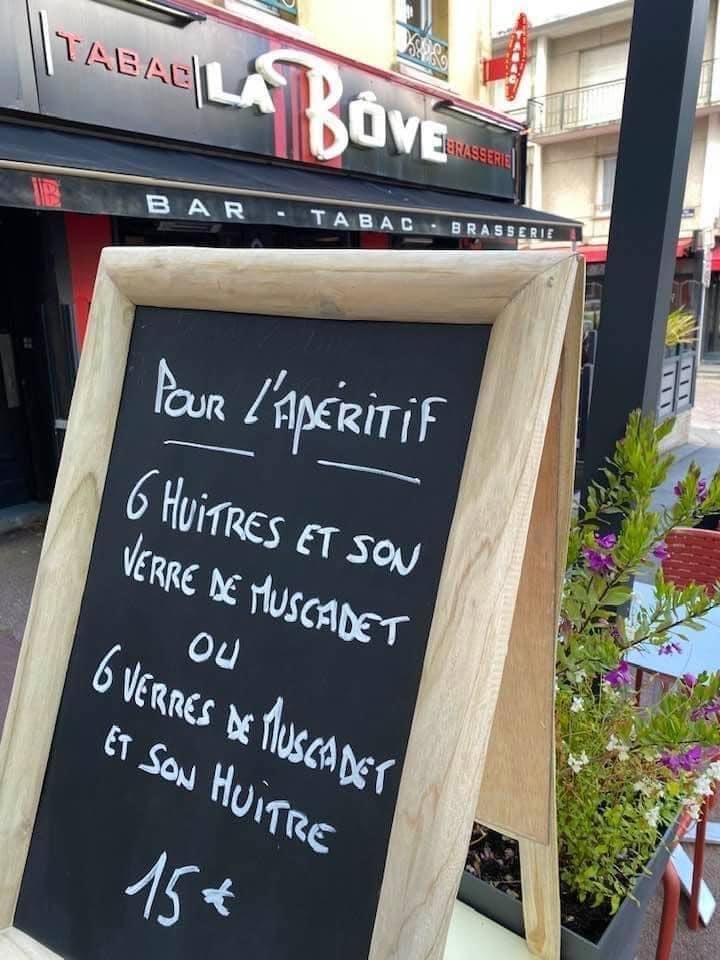 TABAC LA BÔVE BRASSERIE
TABAC
BAR - TABAC - BRASSERIE
POUR L'APÉRITIF
6 HUITRES ET SON
VERRE DE MUSCADET
OU
6 VERRES DE MUSCADET
ET SON HUITRE
15 €